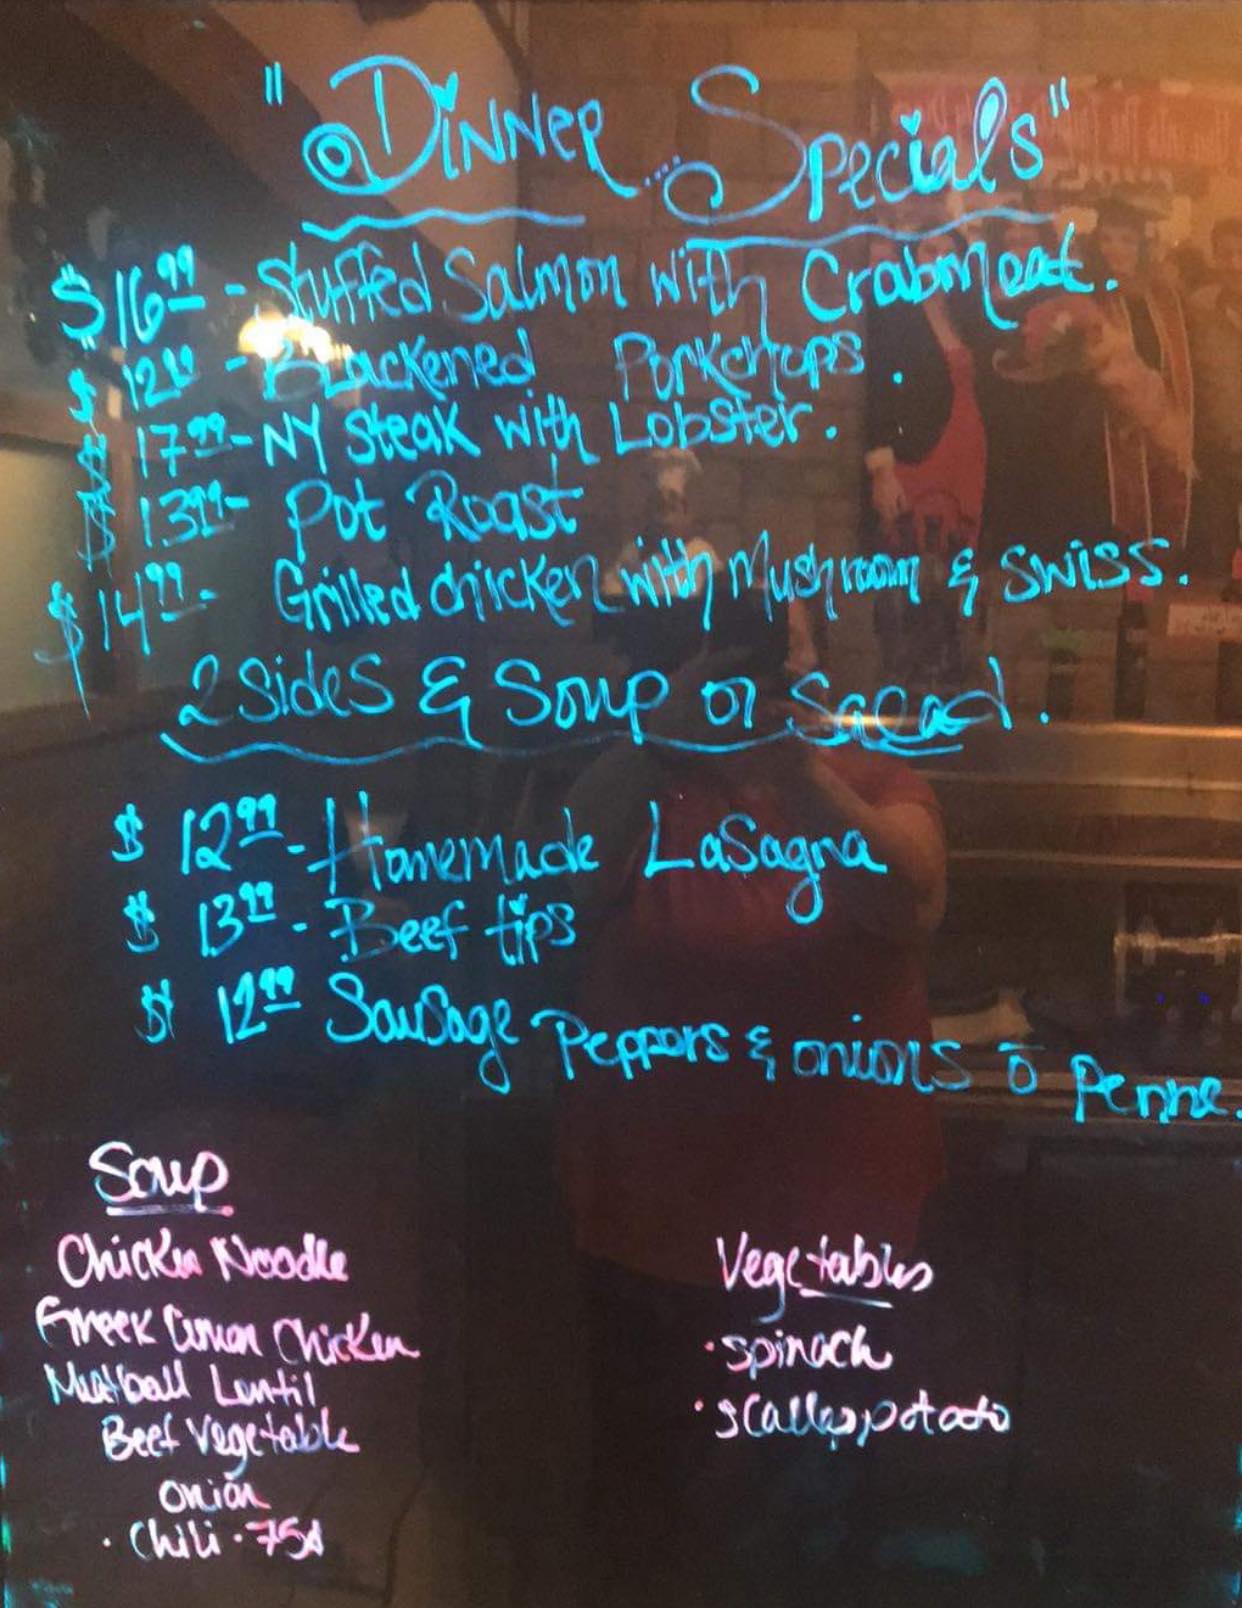 "Dinner Specials"
$16.99 - Stuffed Salmon with Crabmeat.
$12.99 - Blackened Porkchops.
$17.99 - NY Steak with Lobster.
$13.99 - Pot Roast
$14.99 - Grilled chicken with Mushroom & Swiss.
2 Sides & Soup or Salad.
$12.99 - Homemade LaSagna
$13.99 - Beef tips
$12.99 Sausage Peppers & onions ō Penne.
Soup
Chicken Noodle
Greek Lemon Chicken
Meatball Lentil
Beef Vegetable
Onion
· Chili · 75¢
Vegetables
· spinach
· potato